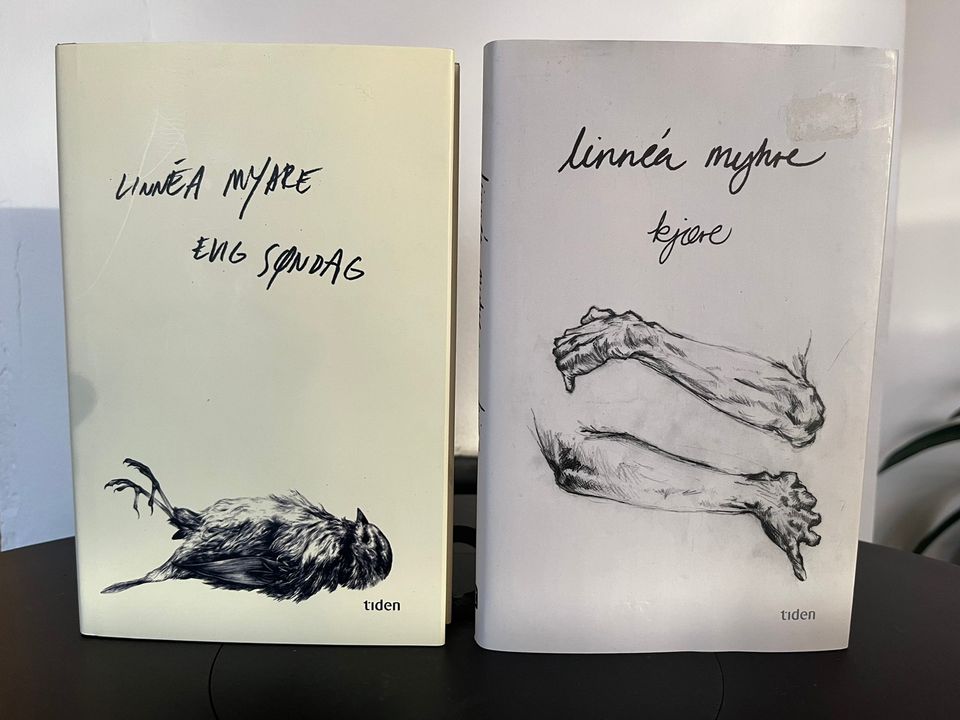 LINNÉA MYHRE
EVIG SØNDAG
tiden
linnéa myhre
kjære
tiden